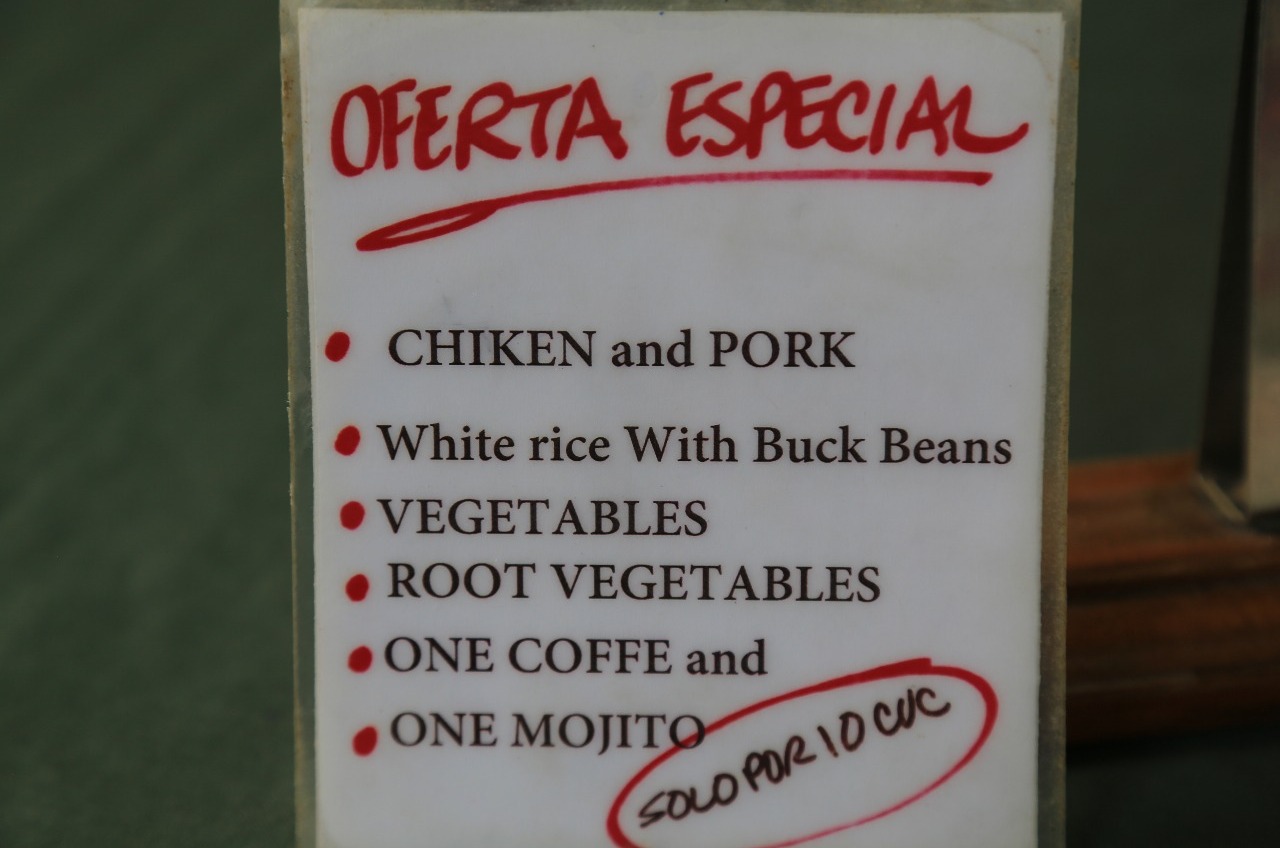 OFERTA ESPECIAL
CHIKEN and PORK
White rice With Buck Beans
VEGETABLES
ROOT VEGETABLES
ONE COFFE and
ONE MOJITO
SOLO POR 10 CUC